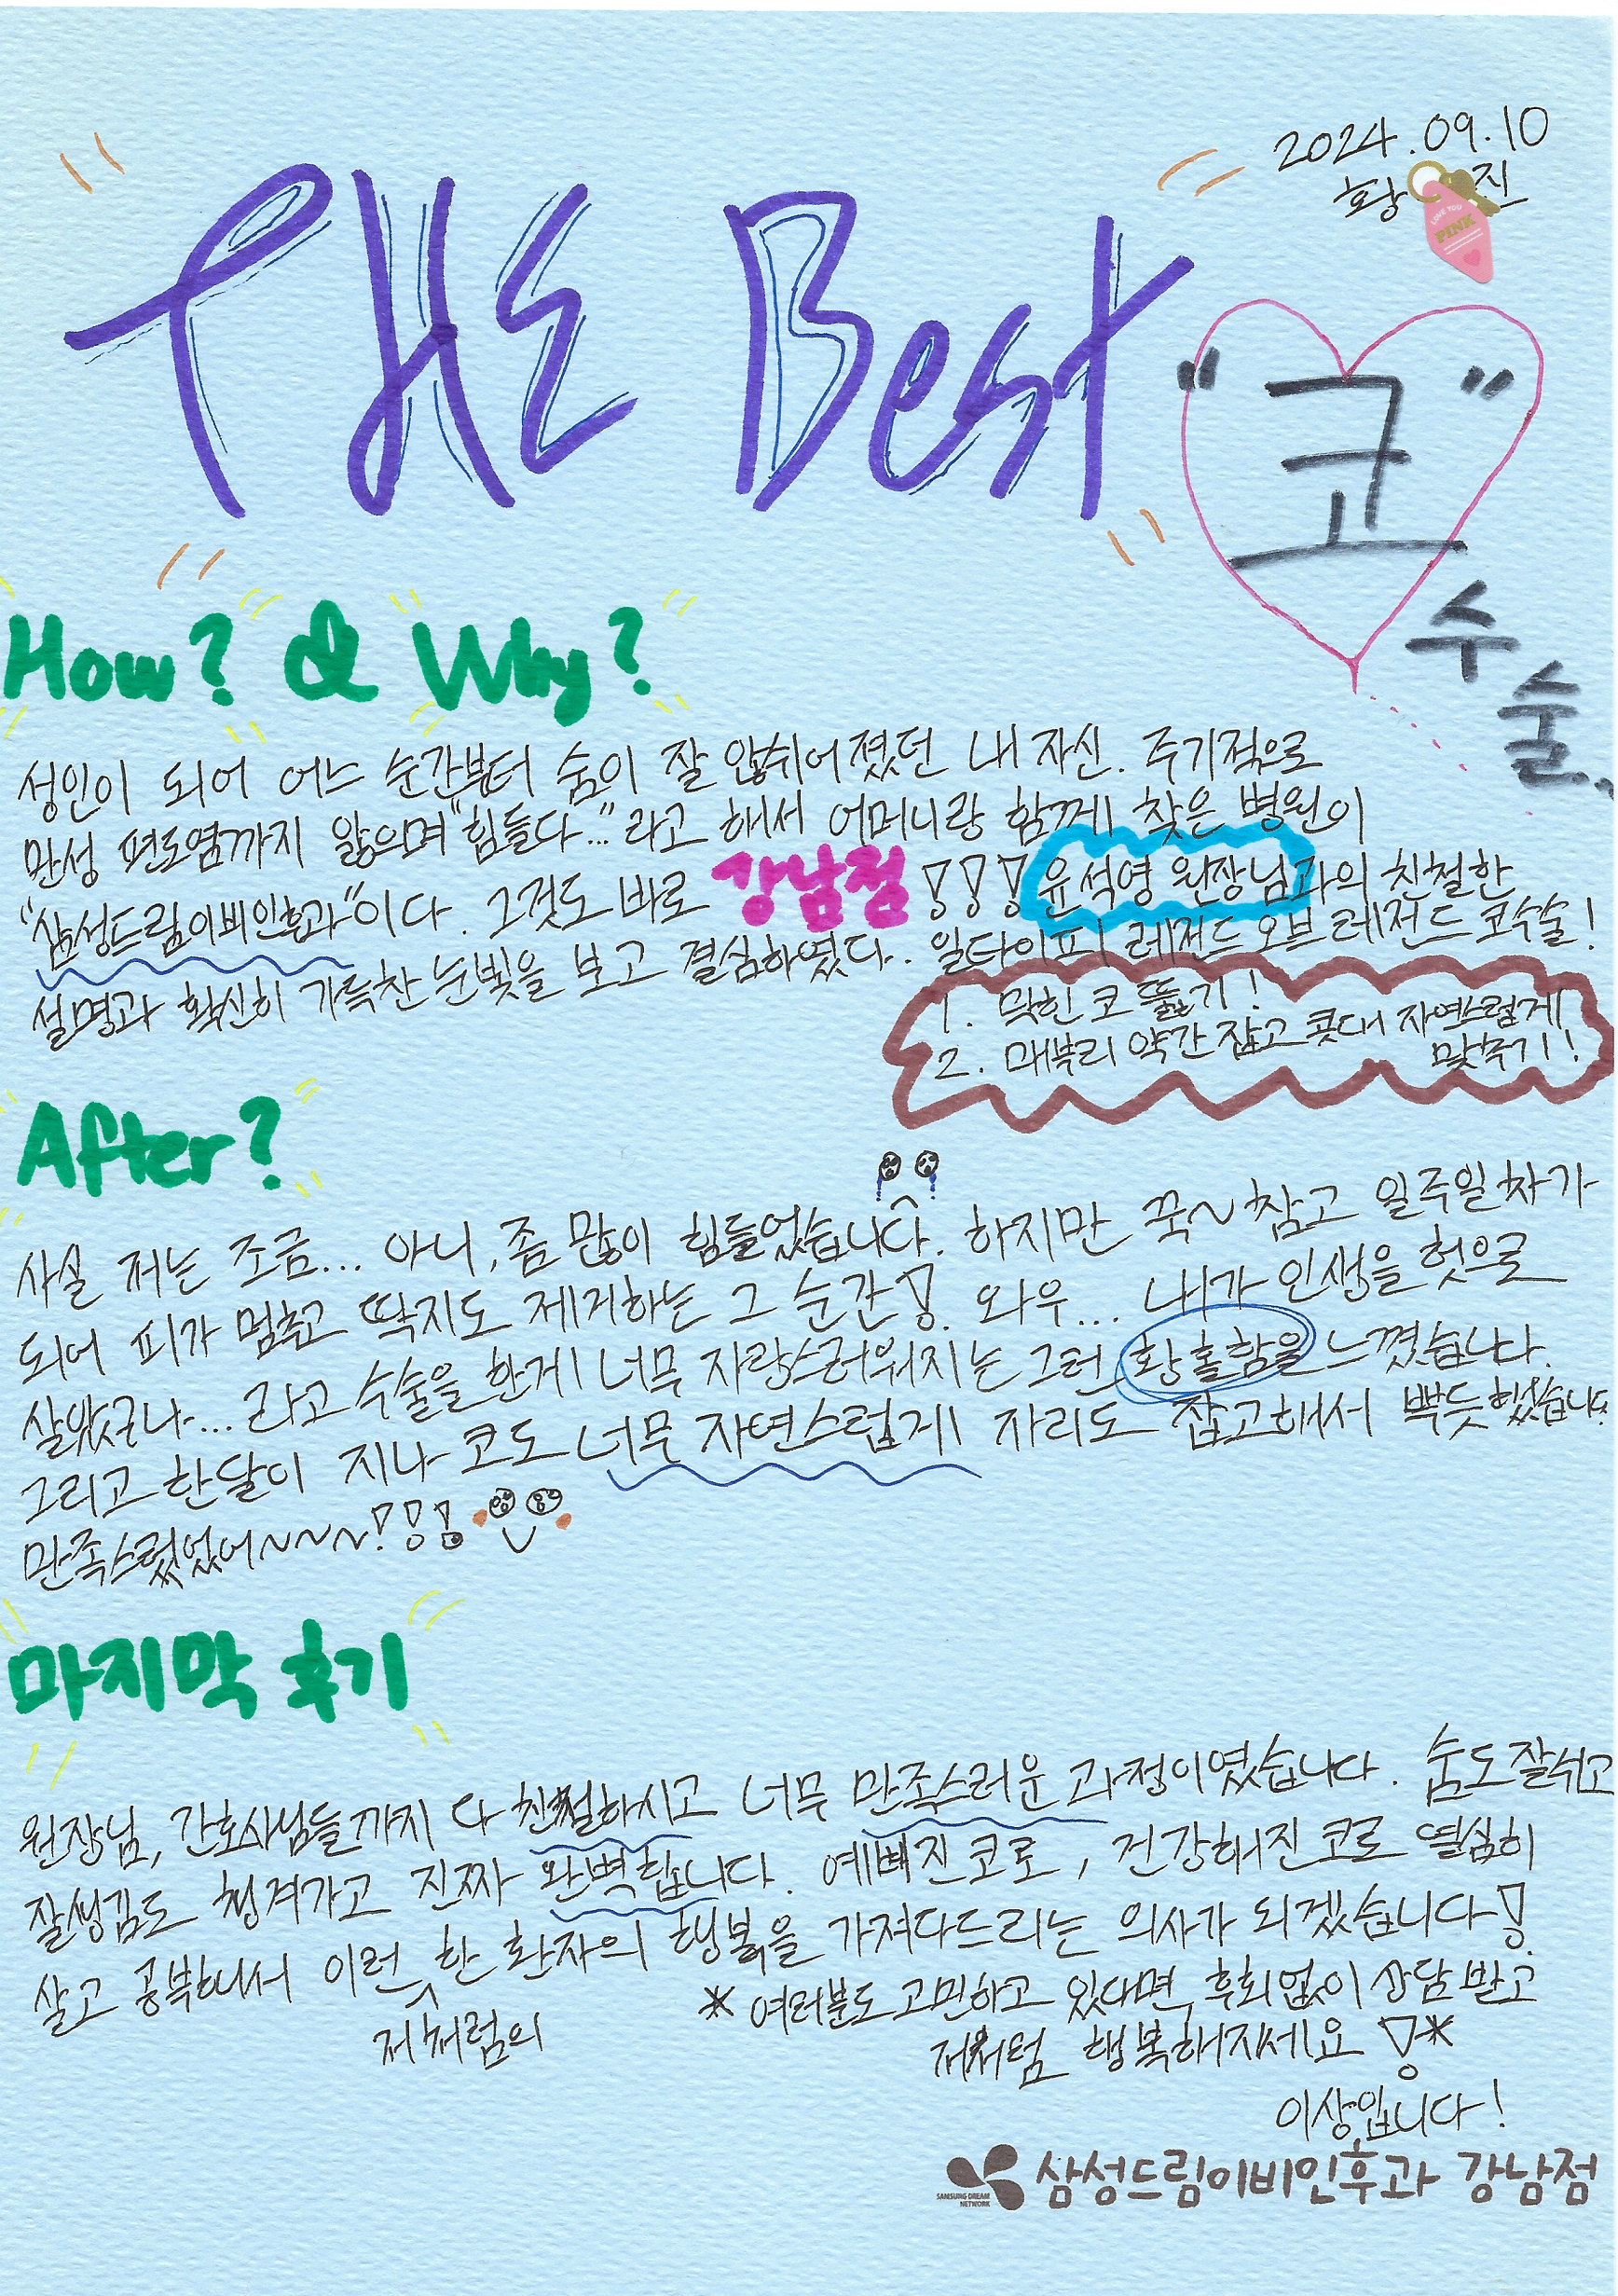 2024.09.10
황 진
THE Best "코"
수술..
How? & Why?
성인이 되어 어느 순간부터 숨이 잘 않쉬어졌던 내 자신. 주기적으로
만성 편도염까지 앓으며 "힘들다..." 라고 해서 어머니랑 함께 찾은 병원이
"삼성드림이비인후과"이다. 그것도 바로 강남점!!! 윤석영 원장님과의 친철한
설명과 확신히 가득찬 눈빛을 보고 결심하였다. 일타이피 레전드오브레전드 코수술!
1. 막힌 코 뚫기!
2. 매부리 약간 잡고 콧대 자연스럽게
맞추기!
After?
사실 저는 조금... 아니, 좀 많이 힘들었습니다. 하지만 꾹~참고 일주일차가
되어 피가 멈추고 딱지도 제거하는 그 순간! 와우... 내가 인생을 헛으로
살았구나... 라고 수술을 한게 너무 자랑스러워지는 그런 황홀함을 느꼈습니다.
그리고 한달이 지나 코도 너무 자연스럽게 자리도 잡고해서 뿌듯했습니다.
만족스러웠어~~~!!!
마지막 후기
원장님, 간호사님들까지 다 친철하시고 너무 만족스러운 과정이였습니다. 숨도잘쉬고
잘생김도 챙겨가고 진짜 완벽합니다. 예뻐진코로, 건강해진코로 열심히
살고 공부해서 이런 한 환자의 행복을 가져다드리는 의사가 되겠습니다!
저처럼의
*여러분도 고민하고 있다면, 후회없이 상담받고
저처럼 행복해지세요!*
이상입니다!
SAMSUNG DREAM
NETWORK
삼성드림이비인후과 강남점